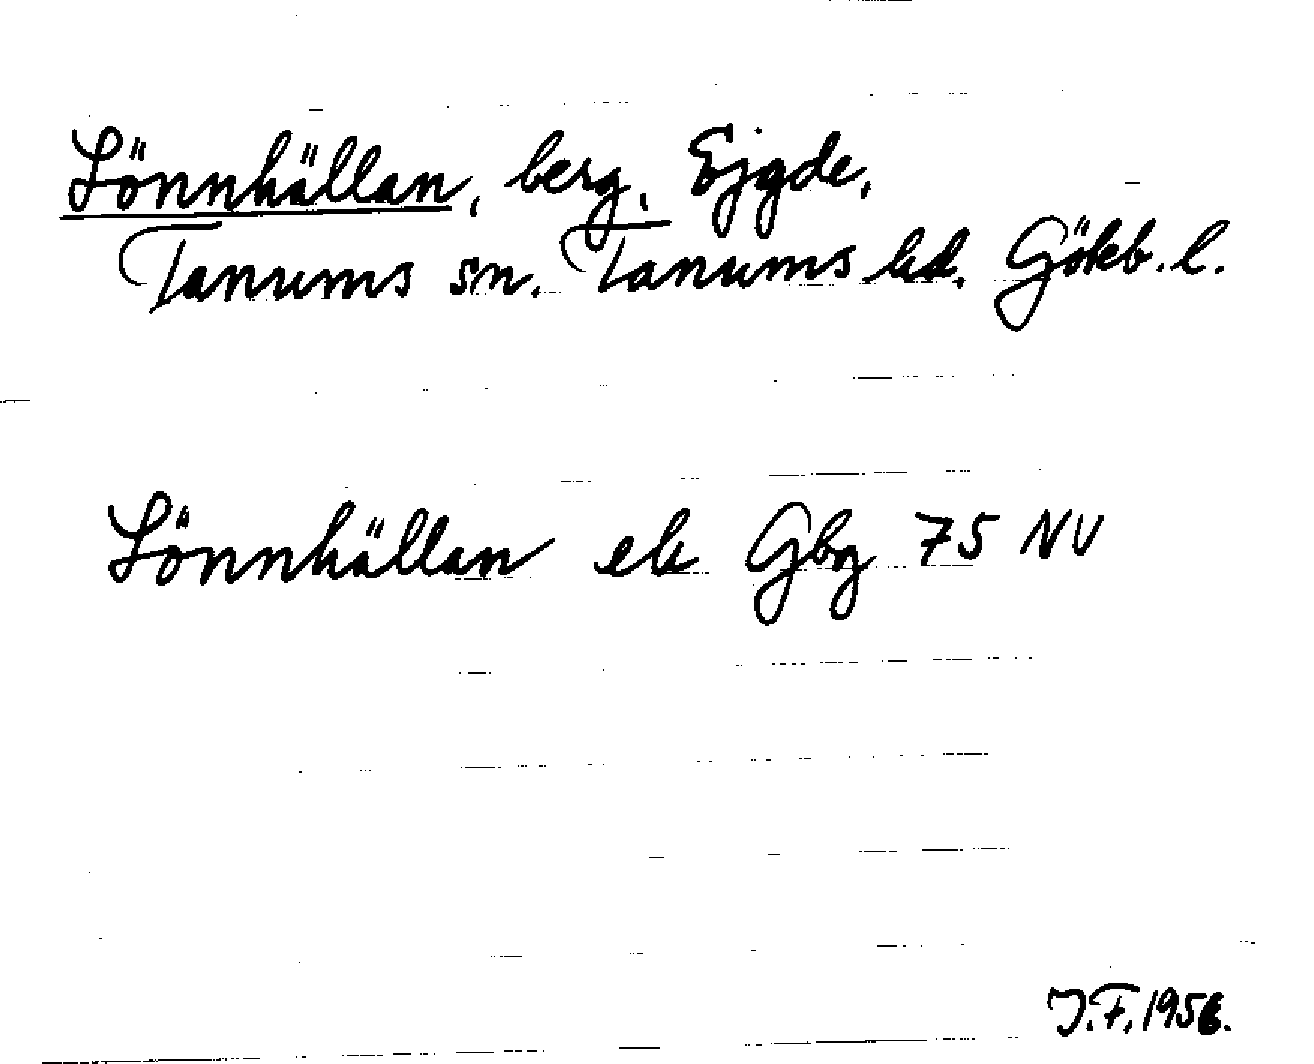 Lönnhällan, berg, Ejgde,
Tanums sn. Tanums hd. Göteb. l.
Lönnhällan ek Gbg 75 NV
J.F. 1956.